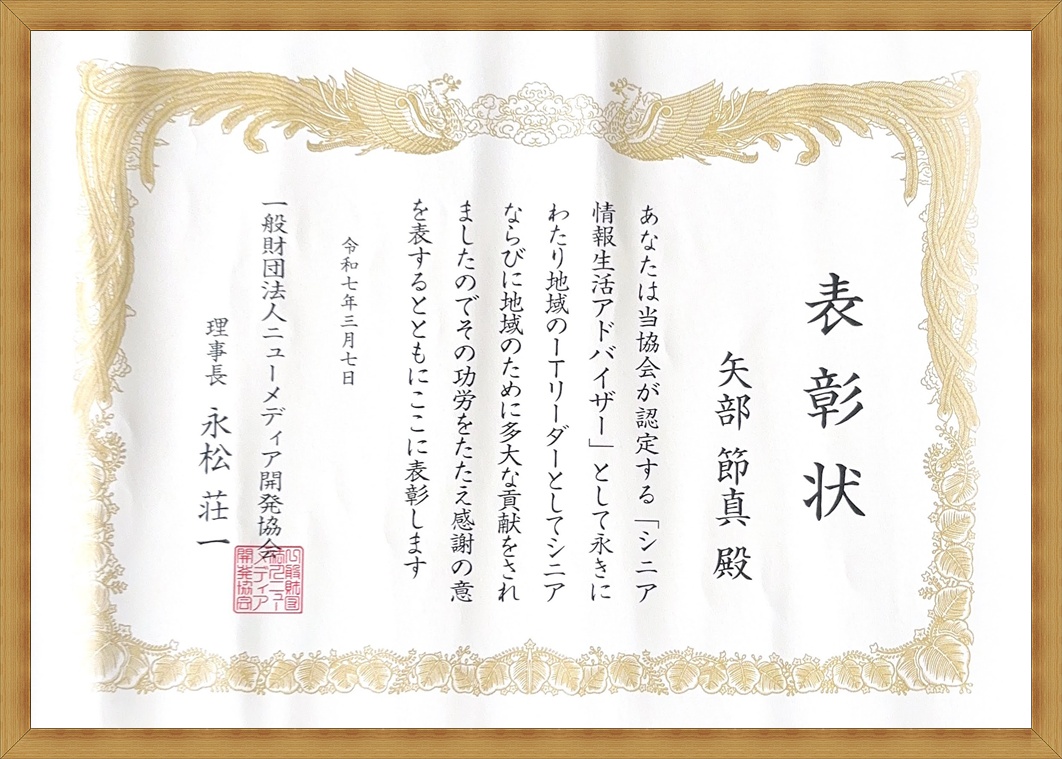 表彰状
矢部 節真 殿
あなたは当協会が認定する「シニア
情報生活アドバイザー」として永きに
わたり地域のITリーダーとしてシニア
ならびに地域のために多大な貢献をされ
ましたのでその功労をたたえ感謝の意
を表するとともにここに表彰します
令和七年三月七日
一般財団法人ニューメディア開発協会
理事長 永松 荘一
一般財団
法人ニュー
メディア
開発協会